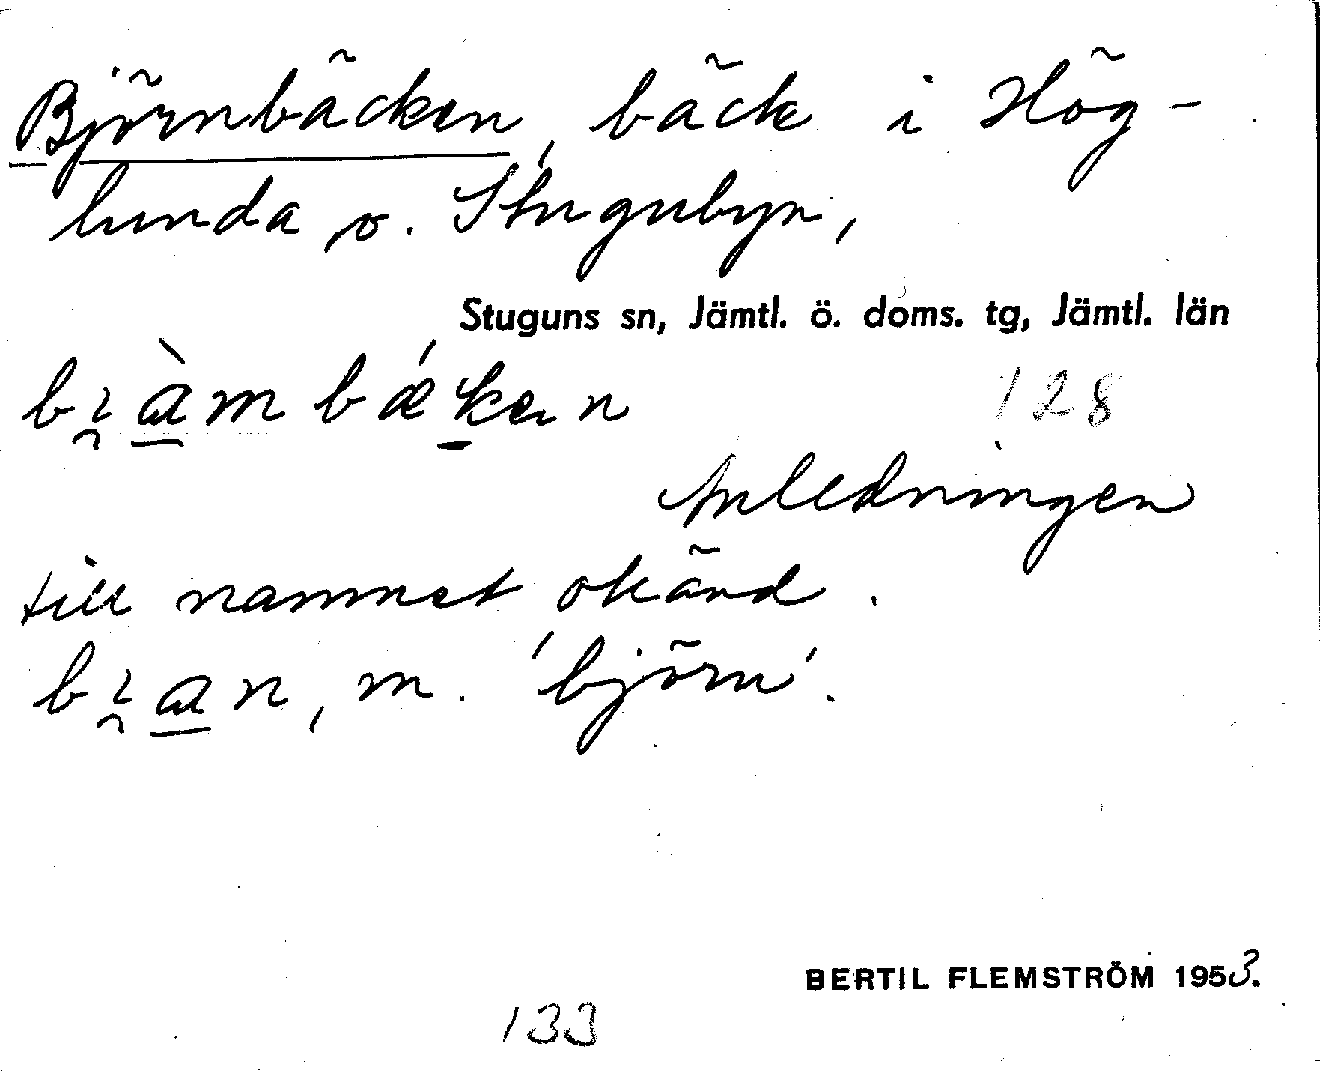 Björnbäcken, bäck i Hög-
lunda o. Stugubyn,
Stuguns sn, Jämtl. ö. doms. tg, Jämtl. län
128
Anledningen
till namnet okänd.
m. 'björn'.
BERTIL FLEMSTRÖM 1953.
133